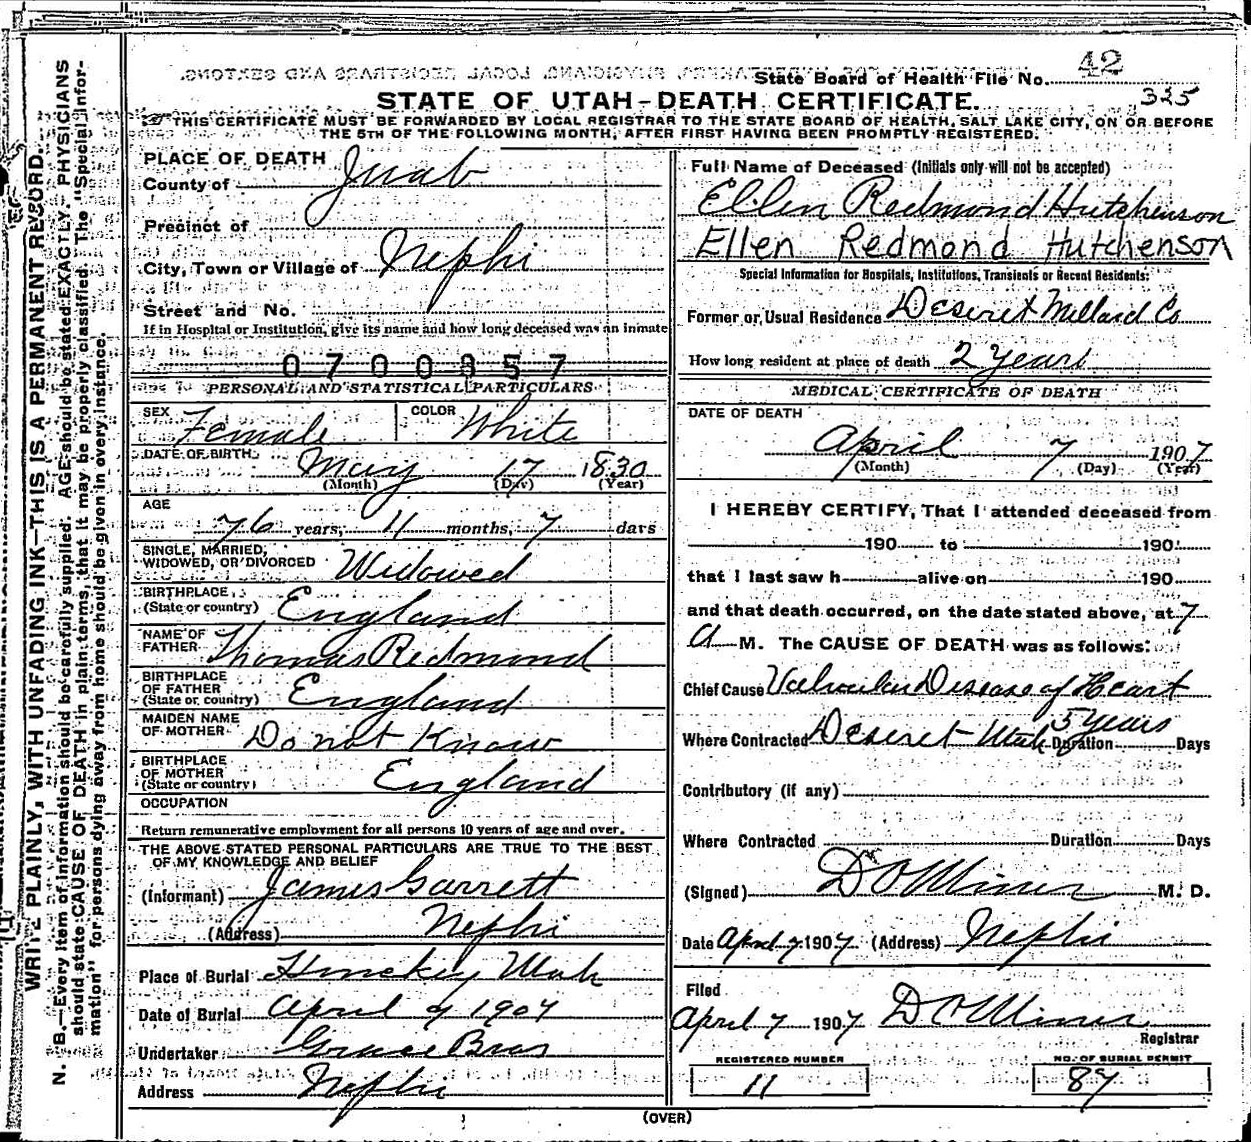 State Board of Health File No. 42
325
STATE OF UTAH-DEATH CERTIFICATE.
THIS CERTIFICATE MUST BE FORWARDED BY LOCAL REGISTRAR TO THE STATE BOARD OF HEALTH, SALT LAKE CITY, ON OR BEFORE
THE 5TH OF THE FOLLOWING MONTH, AFTER FIRST HAVING BEEN PROMPTLY REGISTERED.
WRITE PLAINLY, WITH UNFADING INK—THIS IS A PERMANENT RECORD.
N. B.—Every item of information should be carefully supplied. AGE should be stated EXACTLY. PHYSICIANS
should state CAUSE OF DEATH in plain terms, that it may be properly classified. The "Special Infor-
mation" for persons dying away from home should be given in every instance.
PLACE OF DEATH
County of Juab
Precinct of
City, Town or Village of Nephi
Street and No.
If in Hospital or Institution, give its name and how long deceased was an inmate
0700857
PERSONAL AND STATISTICAL PARTICULARS
SEX Female COLOR White
DATE OF BIRTH May 17 1830
(Month) (Day) (Year)
AGE
76 years, 11 months, 7 days
SINGLE, MARRIED,
WIDOWED, OR DIVORCED Widowed
BIRTHPLACE
(State or country) England
NAME OF
FATHER Thomas Redmond
BIRTHPLACE
OF FATHER
(State or country) England
MAIDEN NAME
OF MOTHER Do not Know
BIRTHPLACE
OF MOTHER
(State or country) England
OCCUPATION
Return remunerative employment for all persons 10 years of age and over.
THE ABOVE STATED PERSONAL PARTICULARS ARE TRUE TO THE BEST
OF MY KNOWLEDGE AND BELIEF
(Informant) James Garrett
(Address) Nephi
Place of Burial Hinckley Utah
Date of Burial April 9 1907
Undertaker Bros
Address Nephi
Full Name of Deceased (Initials only will not be accepted)
Ellen Redmond Hutchenson
Ellen Redmond Hutchenson
Special Information for Hospitals, Institutions, Transients or Recent Residents:
Former or Usual Residence Deseret Millard Co
How long resident at place of death 2 years
MEDICAL CERTIFICATE OF DEATH
DATE OF DEATH
April 7 1907
(Month) (Day) (Year)
I HEREBY CERTIFY, That I attended deceased from
190 to 190
that I last saw h alive on 190
and that death occurred, on the date stated above, at 7
a M. The CAUSE OF DEATH was as follows:
Chief Cause Valvular Disease of Heart
Where Contracted Deseret Utah Duration 5 years Days
Contributory (if any)
Where Contracted Duration Days
(Signed) D O Miner M. D.
Date April 7 1907 (Address) Nephi
Filed
April 7 1907 D O Miner
Registrar
REGISTERED NUMBER
11
NO. OF BURIAL PERMIT
87
(OVER)